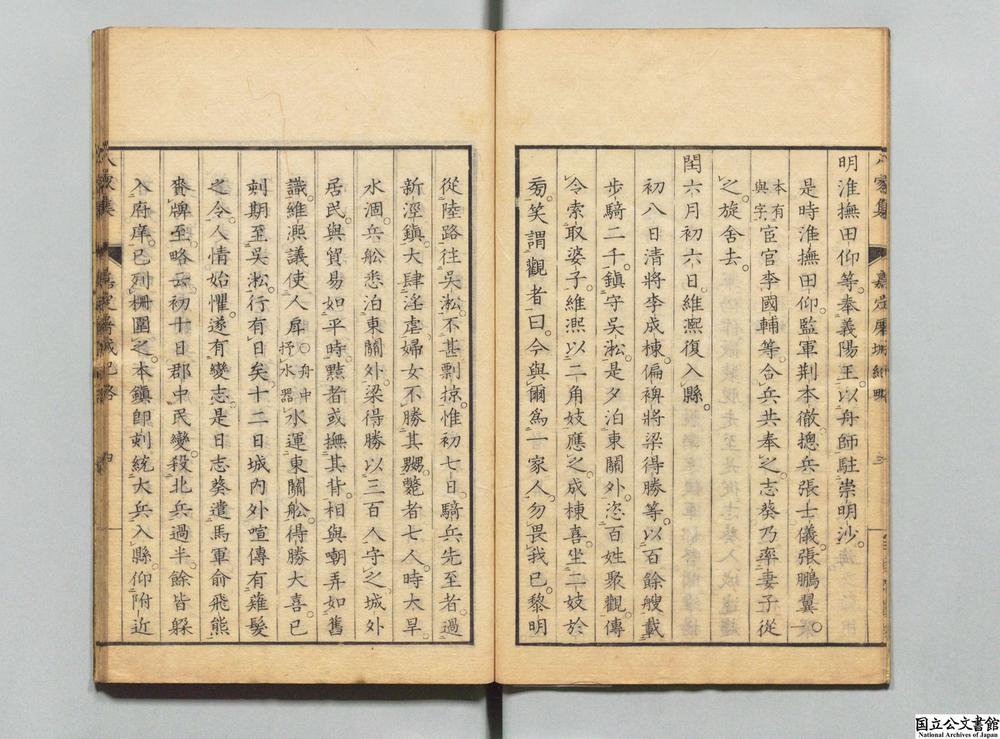 明淮撫田仰等奉義陽王以舟師駐崇明沙。
是時淮撫田仰監軍荆本徹摠兵張士儀張鵬翼一
本有與字宦官李國輔等合兵共奉之志葵乃率妻子從
之旋舍去。
閏六月初六日維熈復入縣。
初八日清將李成棟偏裨將梁得勝等以百餘艘載
步騎二千鎮守吳淞是夕泊東關外恣百姓聚觀傳
令索取婆子維熈以二角妓應之成棟喜坐二妓於
旁笑謂觀者曰今與爾爲一家人勿畏我已黎明
從陸路往吳淞不甚剽掠惟初七日騎兵先至者過
新涇鎮大肆淫虐婦女不勝其嬲斃者七人時大旱
水涸兵舩悉泊東關外梁得勝以三百人守之城外
居民與貿易如平時黠者或撫其背相與嘲弄如舊
識維凞議使人戽○舟中抒水器水運東關舩得勝大喜已
刺期至吳淞行有日矣十二日城内外喧傳有薙髮
之令人情始懼遂有變志是日志葵遣馬軍俞飛熊
賫牌至略云初十日郡中民變殺北兵過半餘皆躱
入府庠已列柵圍之本鎮即刺統大兵入縣仰附近
国立公文書館
National Archives of Japan